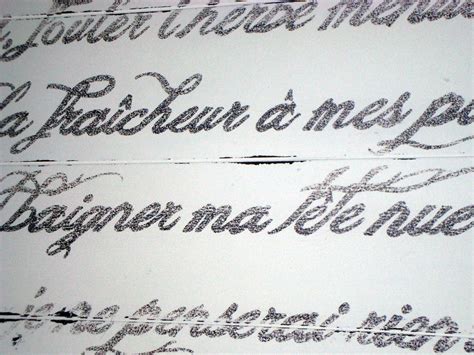 , fouler l'herbe menu
la fraîcheur à mes p
Baigner ma tête nue
je ne parlerai rien